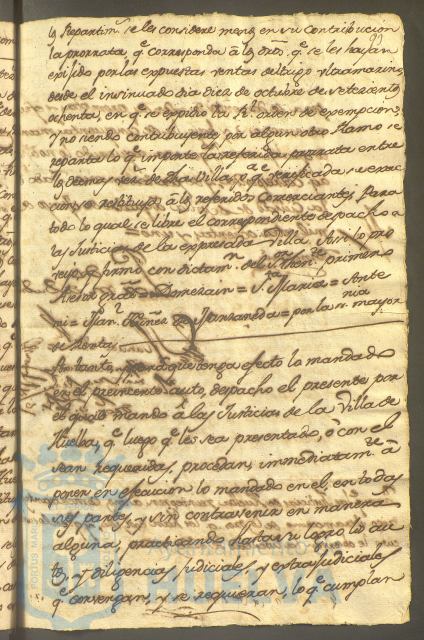 los Repartim.tos se les considere menos en su Contribucion
la prorrata q.e corresponda à los dros. q.e se les hayan
exijido por las expuestas ventas de trigo ultramarino
desde el insinuado dia diez de octubre de setecientos
ochenta, en q.e se expidio la R.l orden de exempcion,
Y no siendo contribuyentes por algun otro Ramo se
reparta lo q.e importe la referida prorrata entre
los demas de dha Villa, q.e verificada su
se restituya à los referidos Comerciantes; Para
todo lo qual se libre el correspondiente despacho a
las Justicias de la expresada Villa. Asi lo pro
veyo, y firmó con dictam.n del primero
= Domezain = = Ante
mi = Nuñez de = por la mayor
de Rentas
Por tanto, y para que tenga efecto lo mandado
en el preinserto auto, despacho el presente por
el qual mando à las Justicias de la Villa de
Huelba, q.e luego q.e les sea presentado, ò con el
sean requeridas, procedan immediatam.te à
poner en execucion lo mandado en el, en todas
sus partes, y sin contravenir en manera
alguna, practicando hasta su logro los au
tos, y diligencias judiciales, y extrajudiciales
q.e convengan, y se requieran, lo q.e cumplan
HUELVA